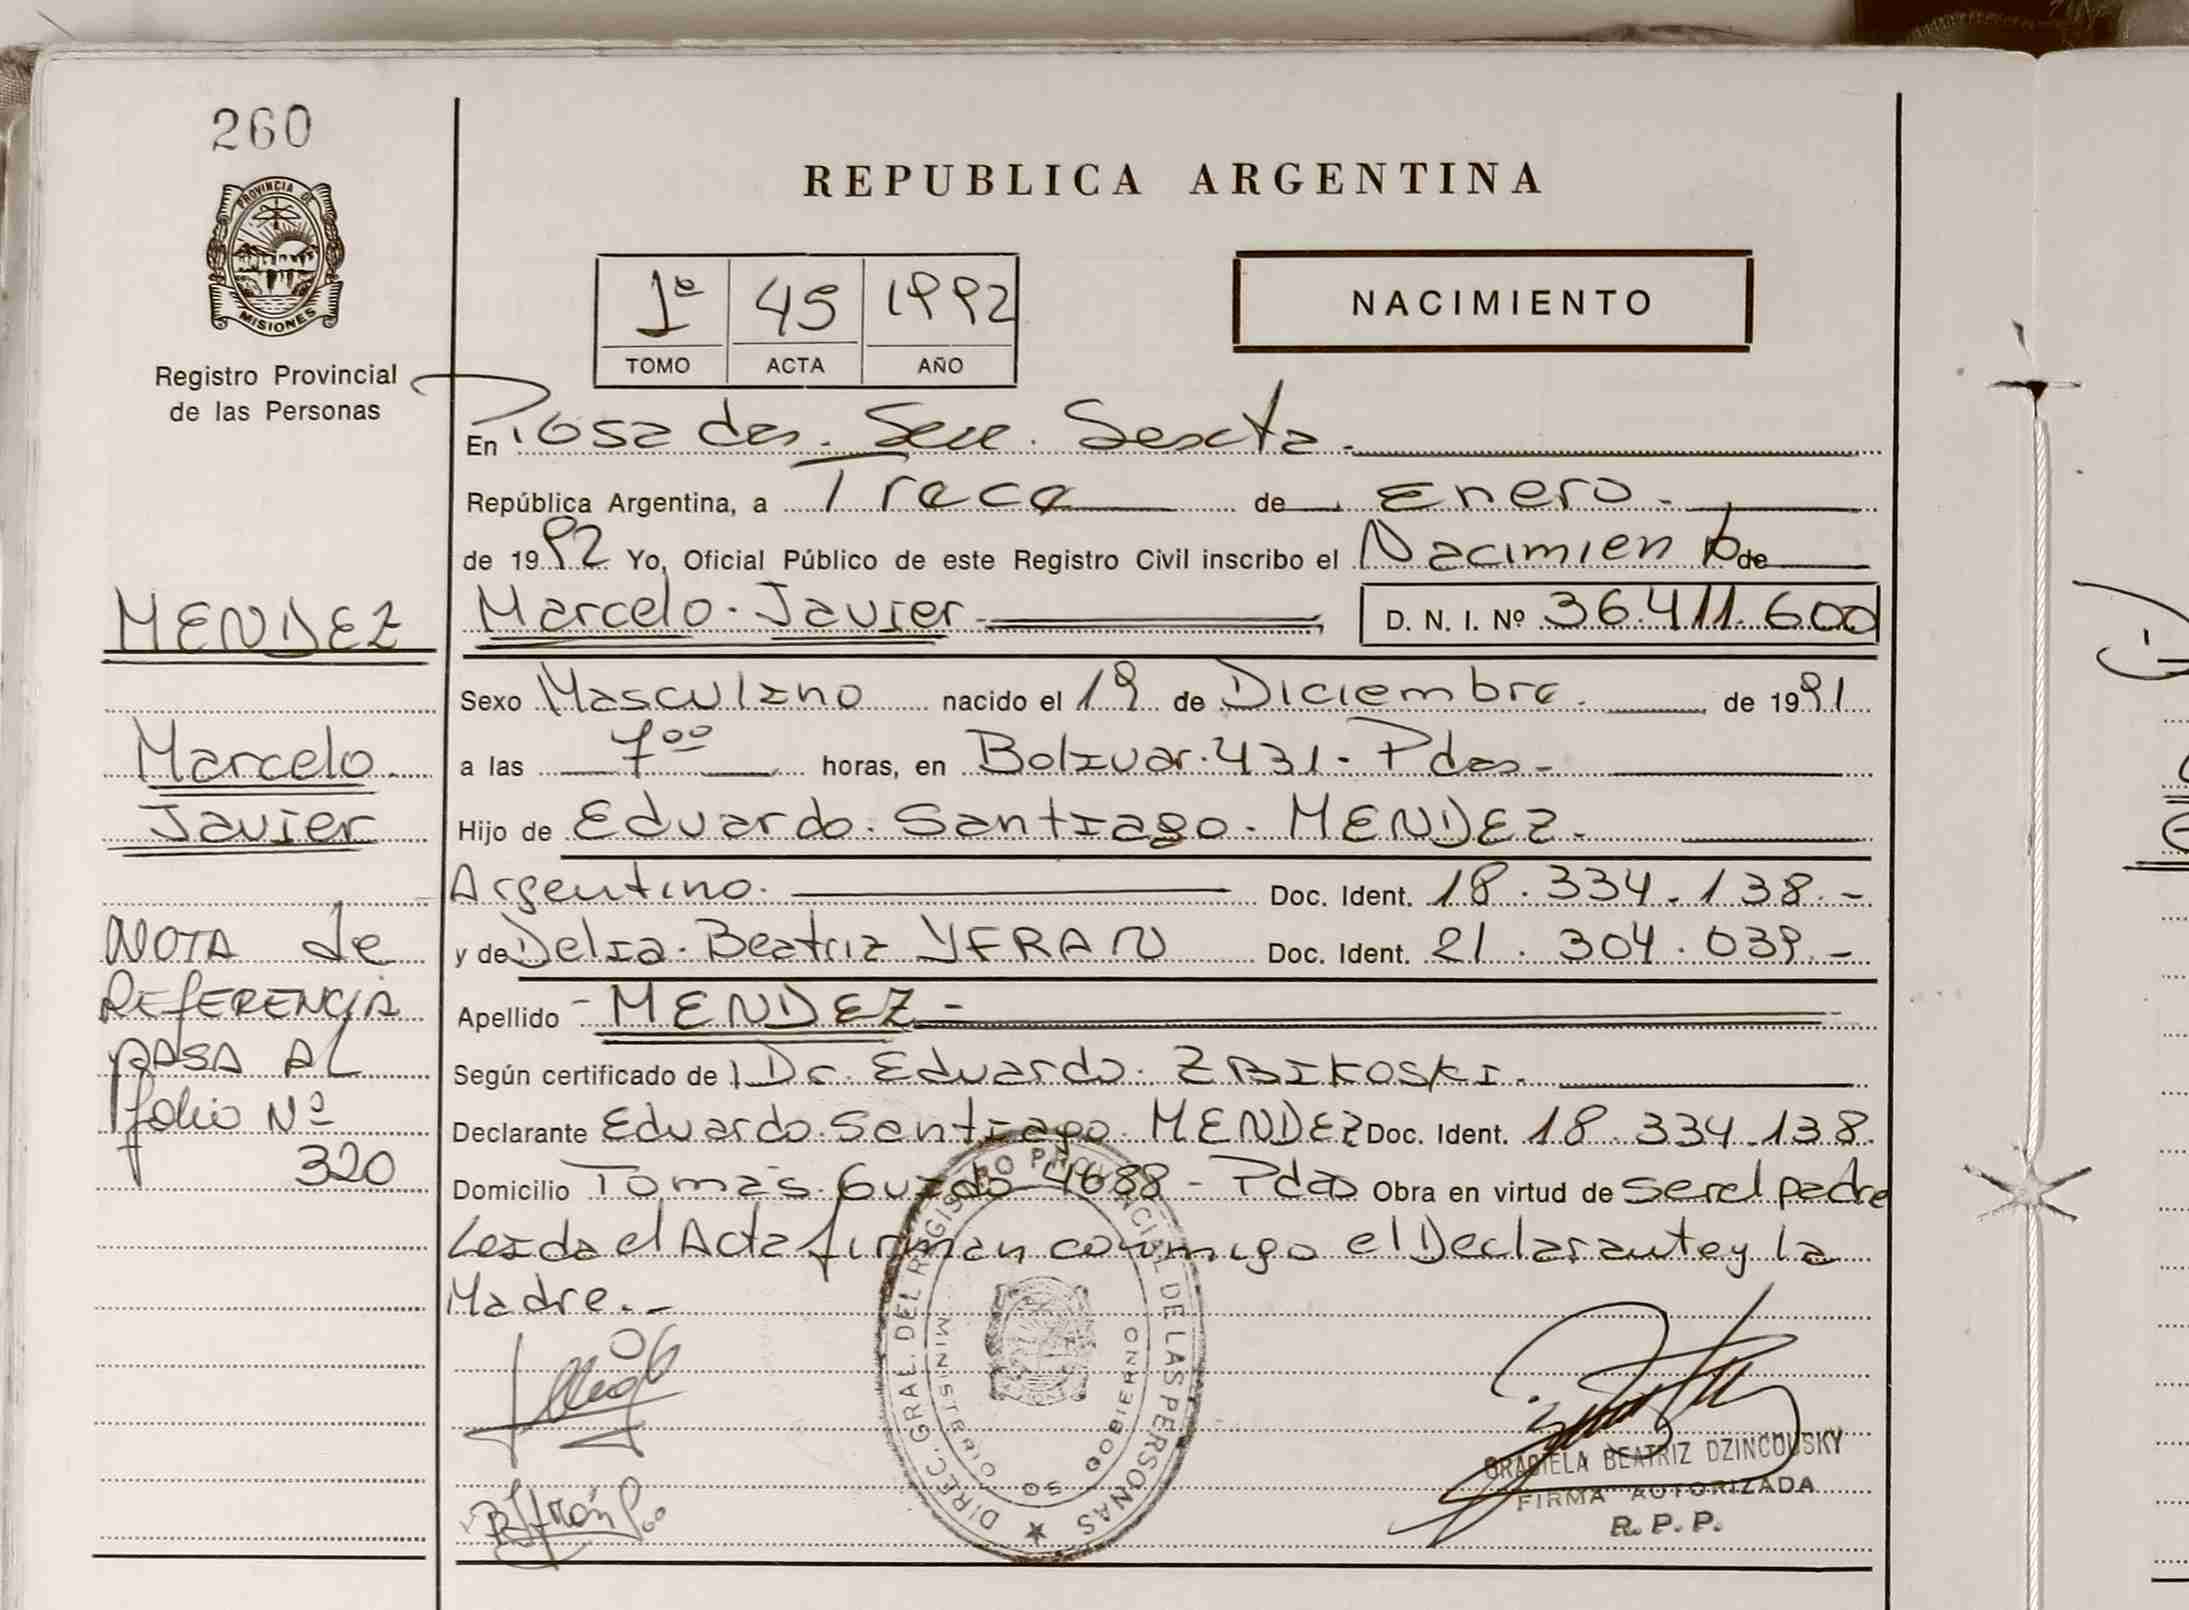 260
PROVINCIA DE
MISIONES
Registro Provincial
de las Personas
REPUBLICA ARGENTINA
1º 45 1992
TOMO ACTA AÑO
NACIMIENTO
En Posadas. Secc. Sexta.
República Argentina, a Trece de Enero.
de 1992 Yo, Oficial Público de este Registro Civil inscribo el Nacimiento de
Marcelo. Javier D. N. I. Nº 36.411.600
Sexo Masculino nacido el 19 de Diciembre. de 1991
a las 7 00 horas, en Bolivar. 431 - Pdas -
Hijo de Eduardo. Santiago. MENDEZ.
Argentino. Doc. Ident. 18.334.138.-
y de Delia. Beatriz YFRAN Doc. Ident. 21.304.039.-
Apellido - MENDEZ -
Según certificado de Dr. Eduardo. ZBIKOSKI.
Declarante Eduardo. Santiago. MENDEZ Doc. Ident. 18.334.138.
Domicilio Tomás. Guido 4688 - Pdas Obra en virtud de ser el padre
Leida el Acta firman conmigo el Declarante y la
Madre. -
MENDEZ
Marcelo.
Javier
NOTA de
REFERENCIA
PASA AL
folio Nº
320
DIREC. GRAL. DEL REGISTRO PROVINCIAL DE LAS PERSONAS
MINISTERIO DE GOBIERNO
GRACIELA BEATRIZ DZINCOUSKY
FIRMA AUTORIZADA
R. P. P.